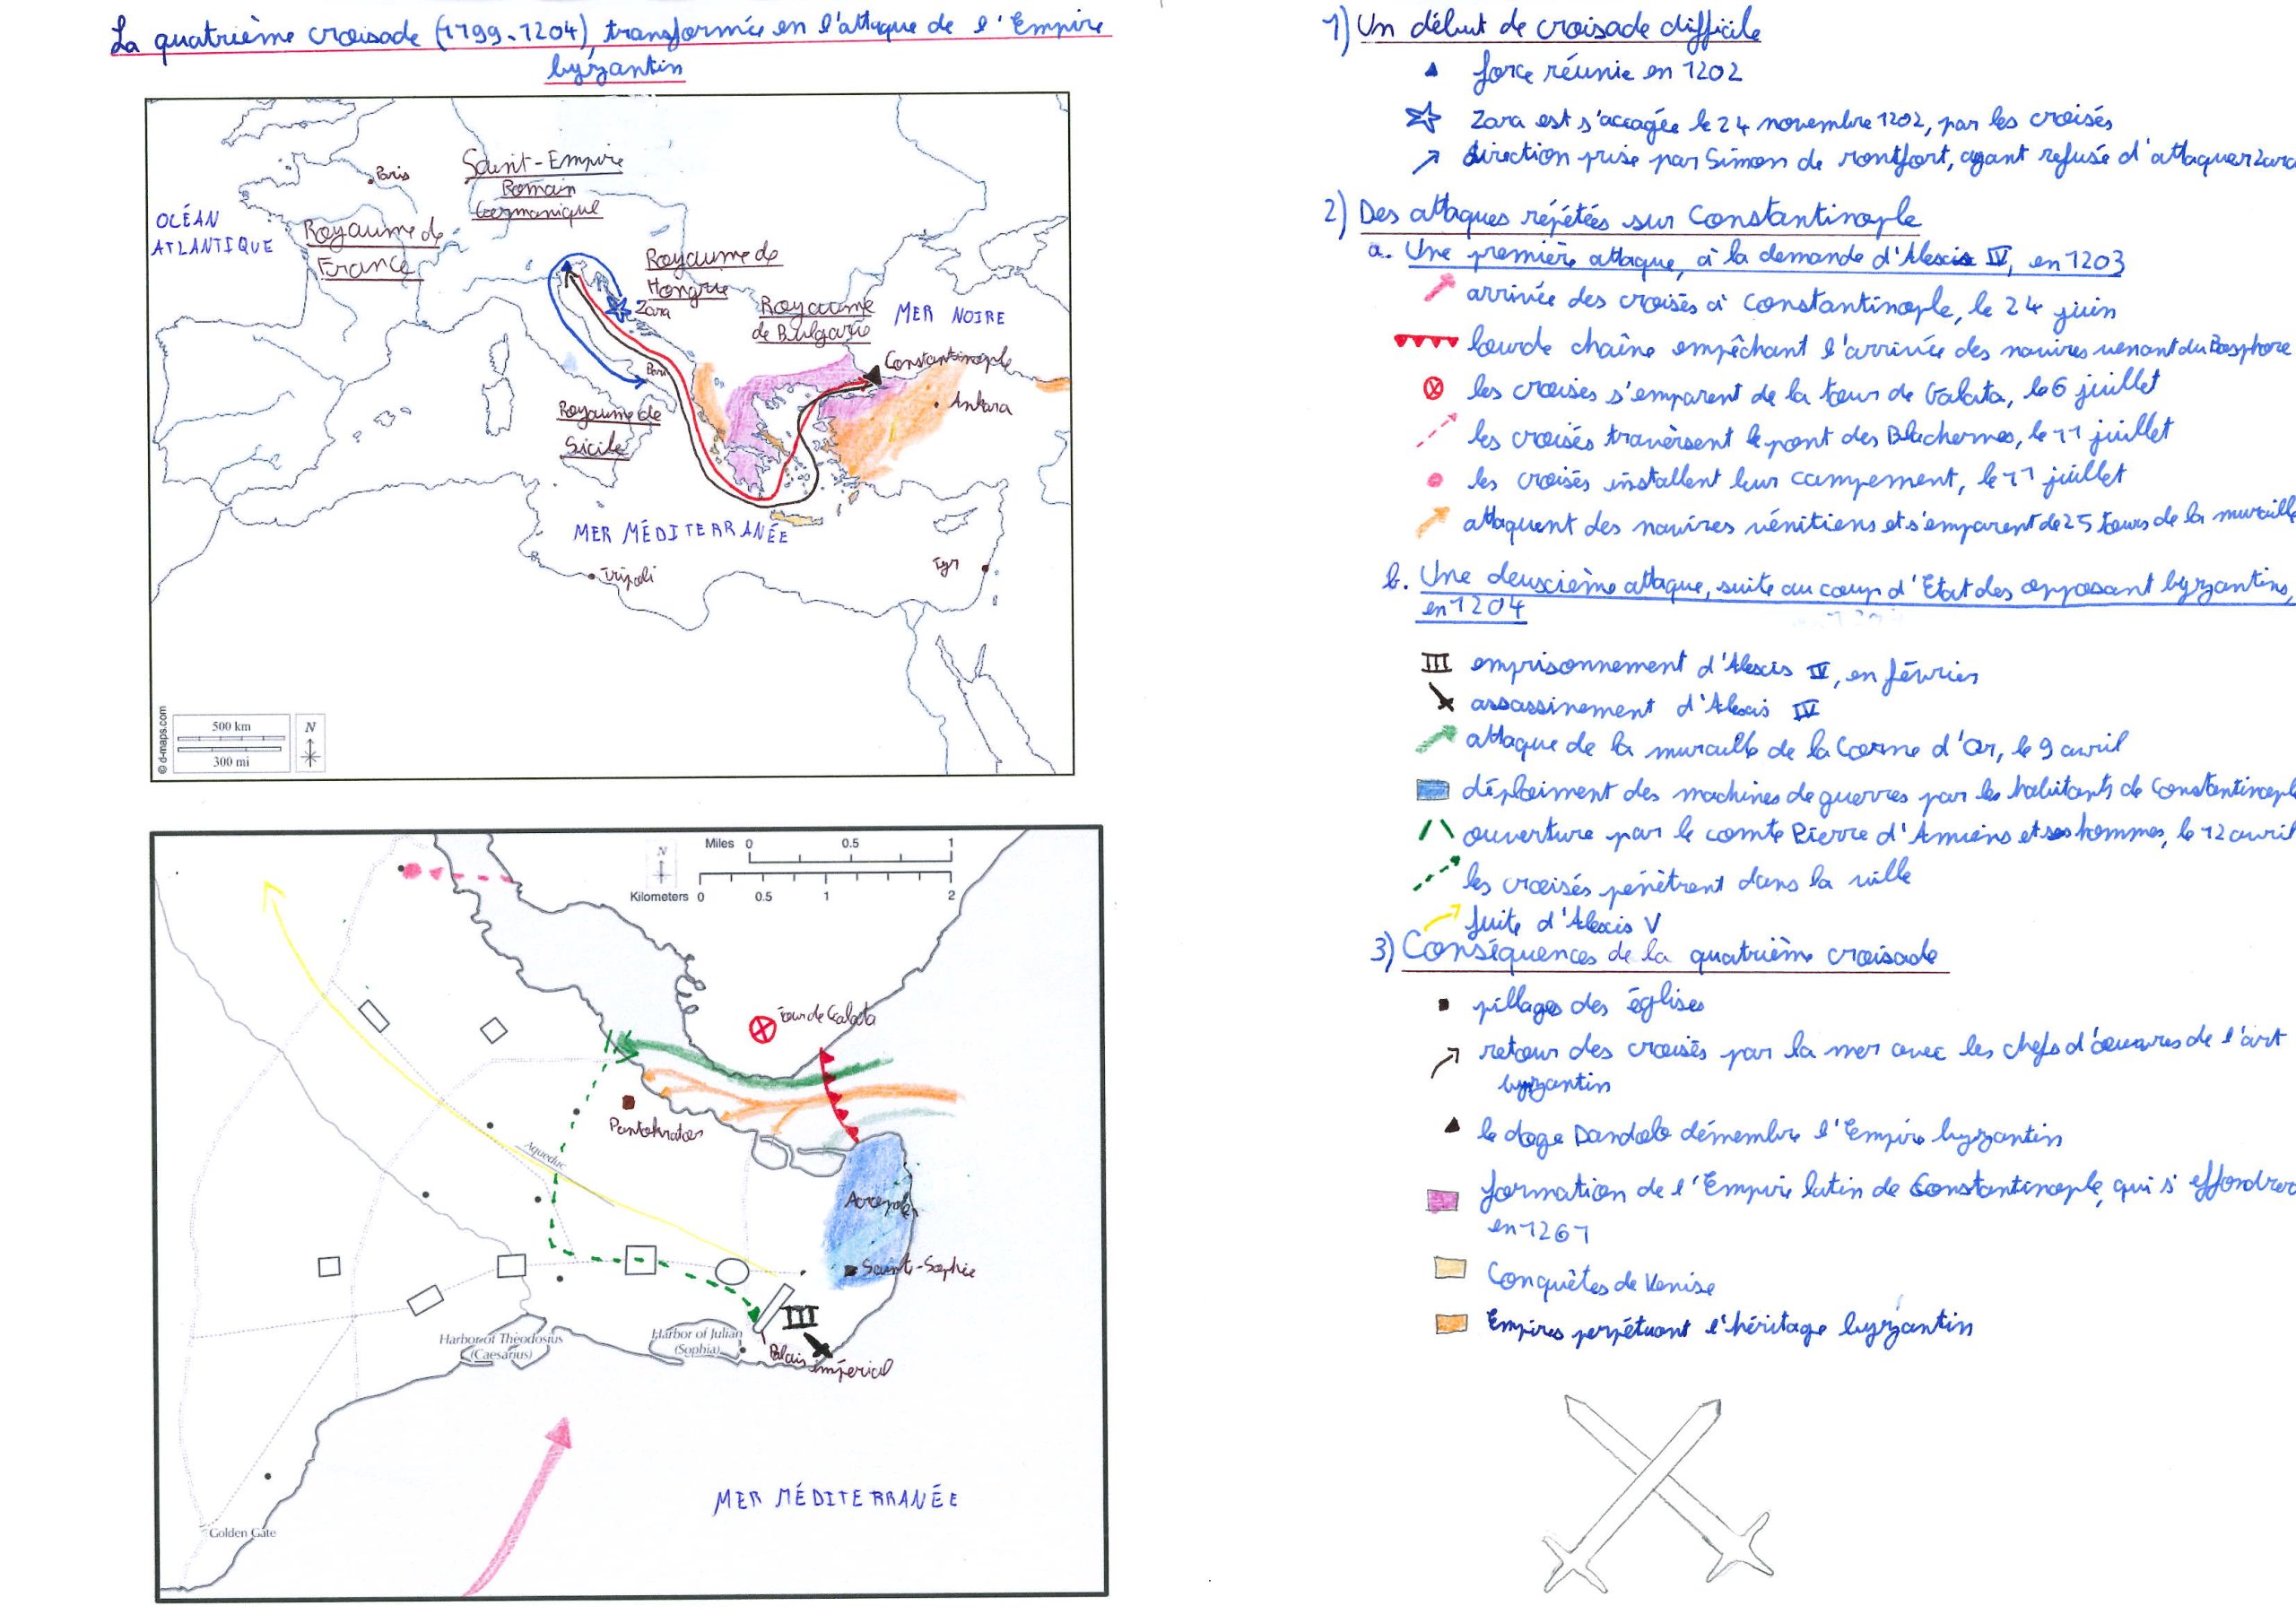 La quatrième croisade (1199-1204), transformée en l'attaque de l'Empire
byzantin
Paris
Saint-Empire
Romain
Germanique
OCÉAN
ATLANTIQUE
Royaume de
France
Royaume de
Hongrie
Zara
Royaume
de Bulgarie
MER NOIRE
Constantinople
Bari
Ankara
Royaume de
Sicile
MER MÉDITERRANÉE
Tripoli
Tyr
© d-maps.com
500 km
300 mi
N
Miles 0 0.5 1
N
Kilometers 0 0.5 1 2
Tour de Galata
Pantokrator
Aqueduc
Acropole
Sainte-Sophie
Harbor of Theodosius
(Caesarius)
Harbor of Julian
(Sophia)
Palais impérial
MER MÉDITERRANÉE
Golden Gate
1) Un début de croisade difficile
force réunie en 1202
Zara est s'accagée le 24 novembre 1202, par les croisés
direction prise par Simon de Montfort, ayant refusé d'attaquer Zara
2) Des attaques répétées sur Constantinople
a. Une première attaque, à la demande d'Alexis IV, en 1203
arrivée des croisés à Constantinople, le 24 juin
lourde chaîne empêchant l'arrivée des navires venant du Bosphore
les croisés s'emparent de la tour de Galata, le 6 juillet
les croisés traversent le pont des Blachernes, le 11 juillet
les croisés installent leur campement, le 11 juillet
attaquent des navires vénitiens et s'emparent de 25 tours de la muraille
b. Une deuxcième attaque, suite au coup d'Etat des opposant byzantins,
en 1204
emprisonnement d'Alexis IV, en février
assassinement d'Alexis IV
attaque de la muraille de la Corne d'Or, le 9 avril
déploiment des machines de guerres par les habitants de Constantinople
ouverture par le comte Pierre d'Amiens et ses hommes, le 12 avril
les croisés pénètrent dans la ville
fuite d'Alexis V
3) Conséquences de la quatrième croisade
pillages des églises
retour des croisés par la mer avec les chefs d'œuvres de l'art
byzantin
le doge Dandolo démembre l'Empire byzantin
formation de l'Empire latin de Constantinople, qui s'effondrera
en 1261
Conquêtes de Venise
Empires perpétuant l'héritage byzantin